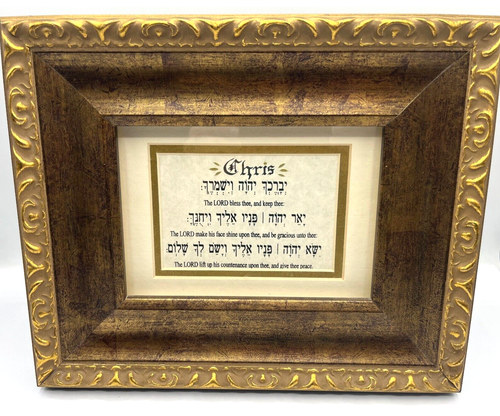 Chris
יְבָרֶכְךָ יְהוָה וְיִשְׁמְרֶךָ:
The LORD bless thee, and keep thee:
יָאֵר יְהוָה | פָּנָיו אֵלֶיךָ וִיחֻנֶּךָּ:
The LORD make his face shine upon thee, and be gracious unto thee:
יִשָּׂא יְהוָה | פָּנָיו אֵלֶיךָ וְיָשֵׂם לְךָ שָׁלוֹם:
The LORD lift up his countenance upon thee, and give thee peace.